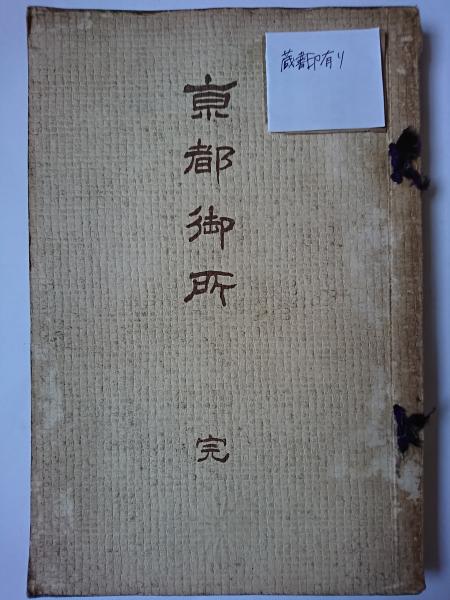 京都御所
完
蔵書印有り